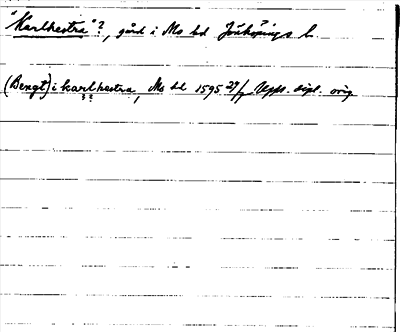 "Karlhestra"?, gård i Mo hd Jönköpings l.
(Bengt) i karlhestra, Mo hd 1595 29/7 Upps. dipl. orig.
??